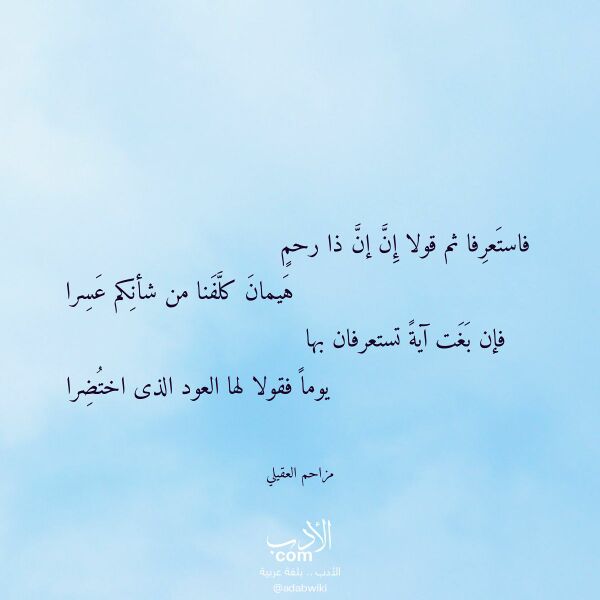 فاستَعرِفا ثم قولا إِنَّ إنَّ ذا رحمٍ
هَيمانَ كلَّفَنا من شأنِكم عَسِرا
فإن بَغَت آيةً تستعرفان بها
يوماً فقولا لها العود الذى اختُضِرا
مزاحم العقيلي
الأدب
com
الأدب .. بلغة عربية
@adabwiki